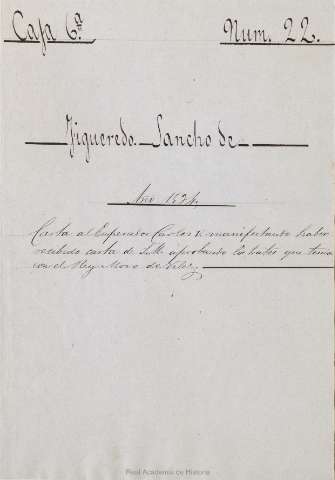 Caja 6.ª Num. 22.
Figueredo.- Sancho de
Año 1534.
Carta al Emperador Carlos V. manifestando haber
recibido carta de S.M. aprobando los tratos que tenia
con el Rey Moro de
Real Academia de Historia